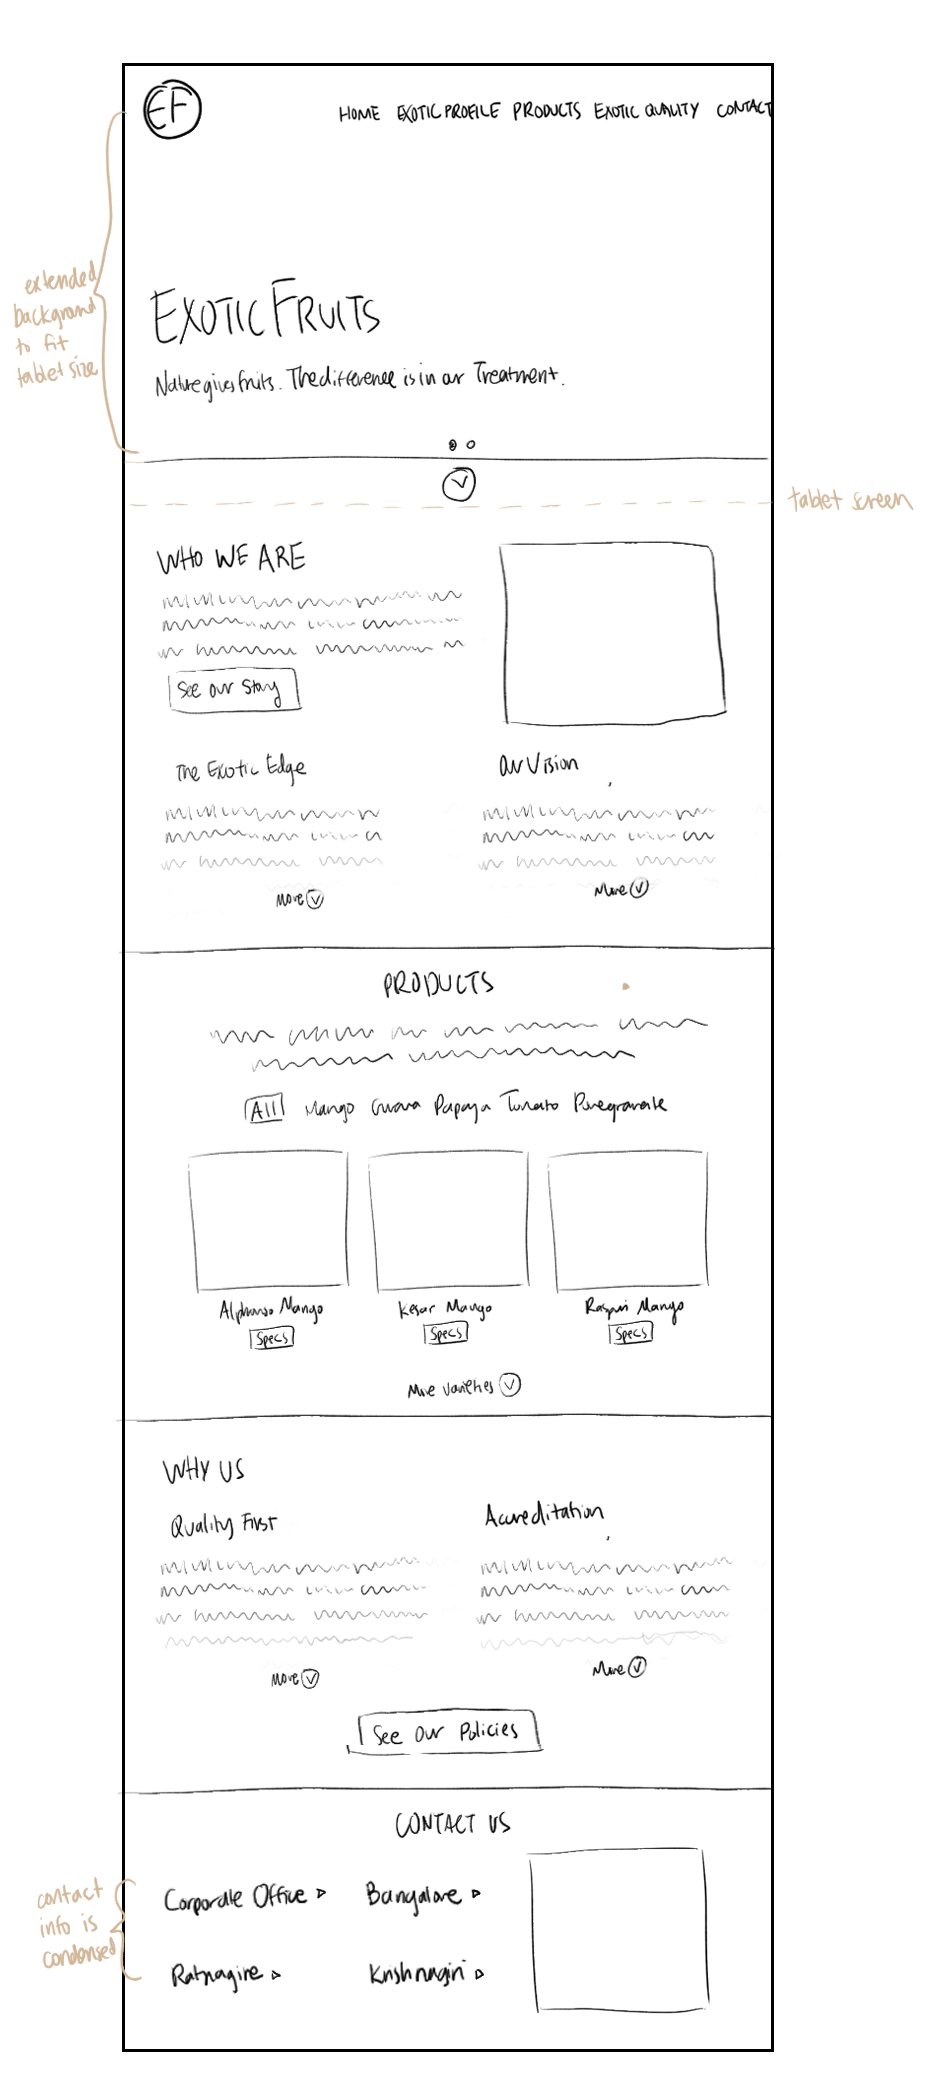 EF
HOME EXOTIC PROFILE PRODUCTS EXOTIC QUALITY CONTACT
extended
background
to fit
tablet size
EXOTIC FRUITS
Nature gives fruits. The difference is in our Treatment.
tablet screen
WHO WE ARE
See our Story
The Exotic Edge
Our Vision
More
More
PRODUCTS
All Mango Guava Papaya Tomato Pomegranate
Alphonso Mango Kesar Mango Raspuri Mango
Specs Specs Specs
More varieties
WHY US
Quality First
Accreditation
More
More
See Our Policies
CONTACT US
contact
info is
condensed
Corporate Office Bangalore
Ratnagire Krishnagiri